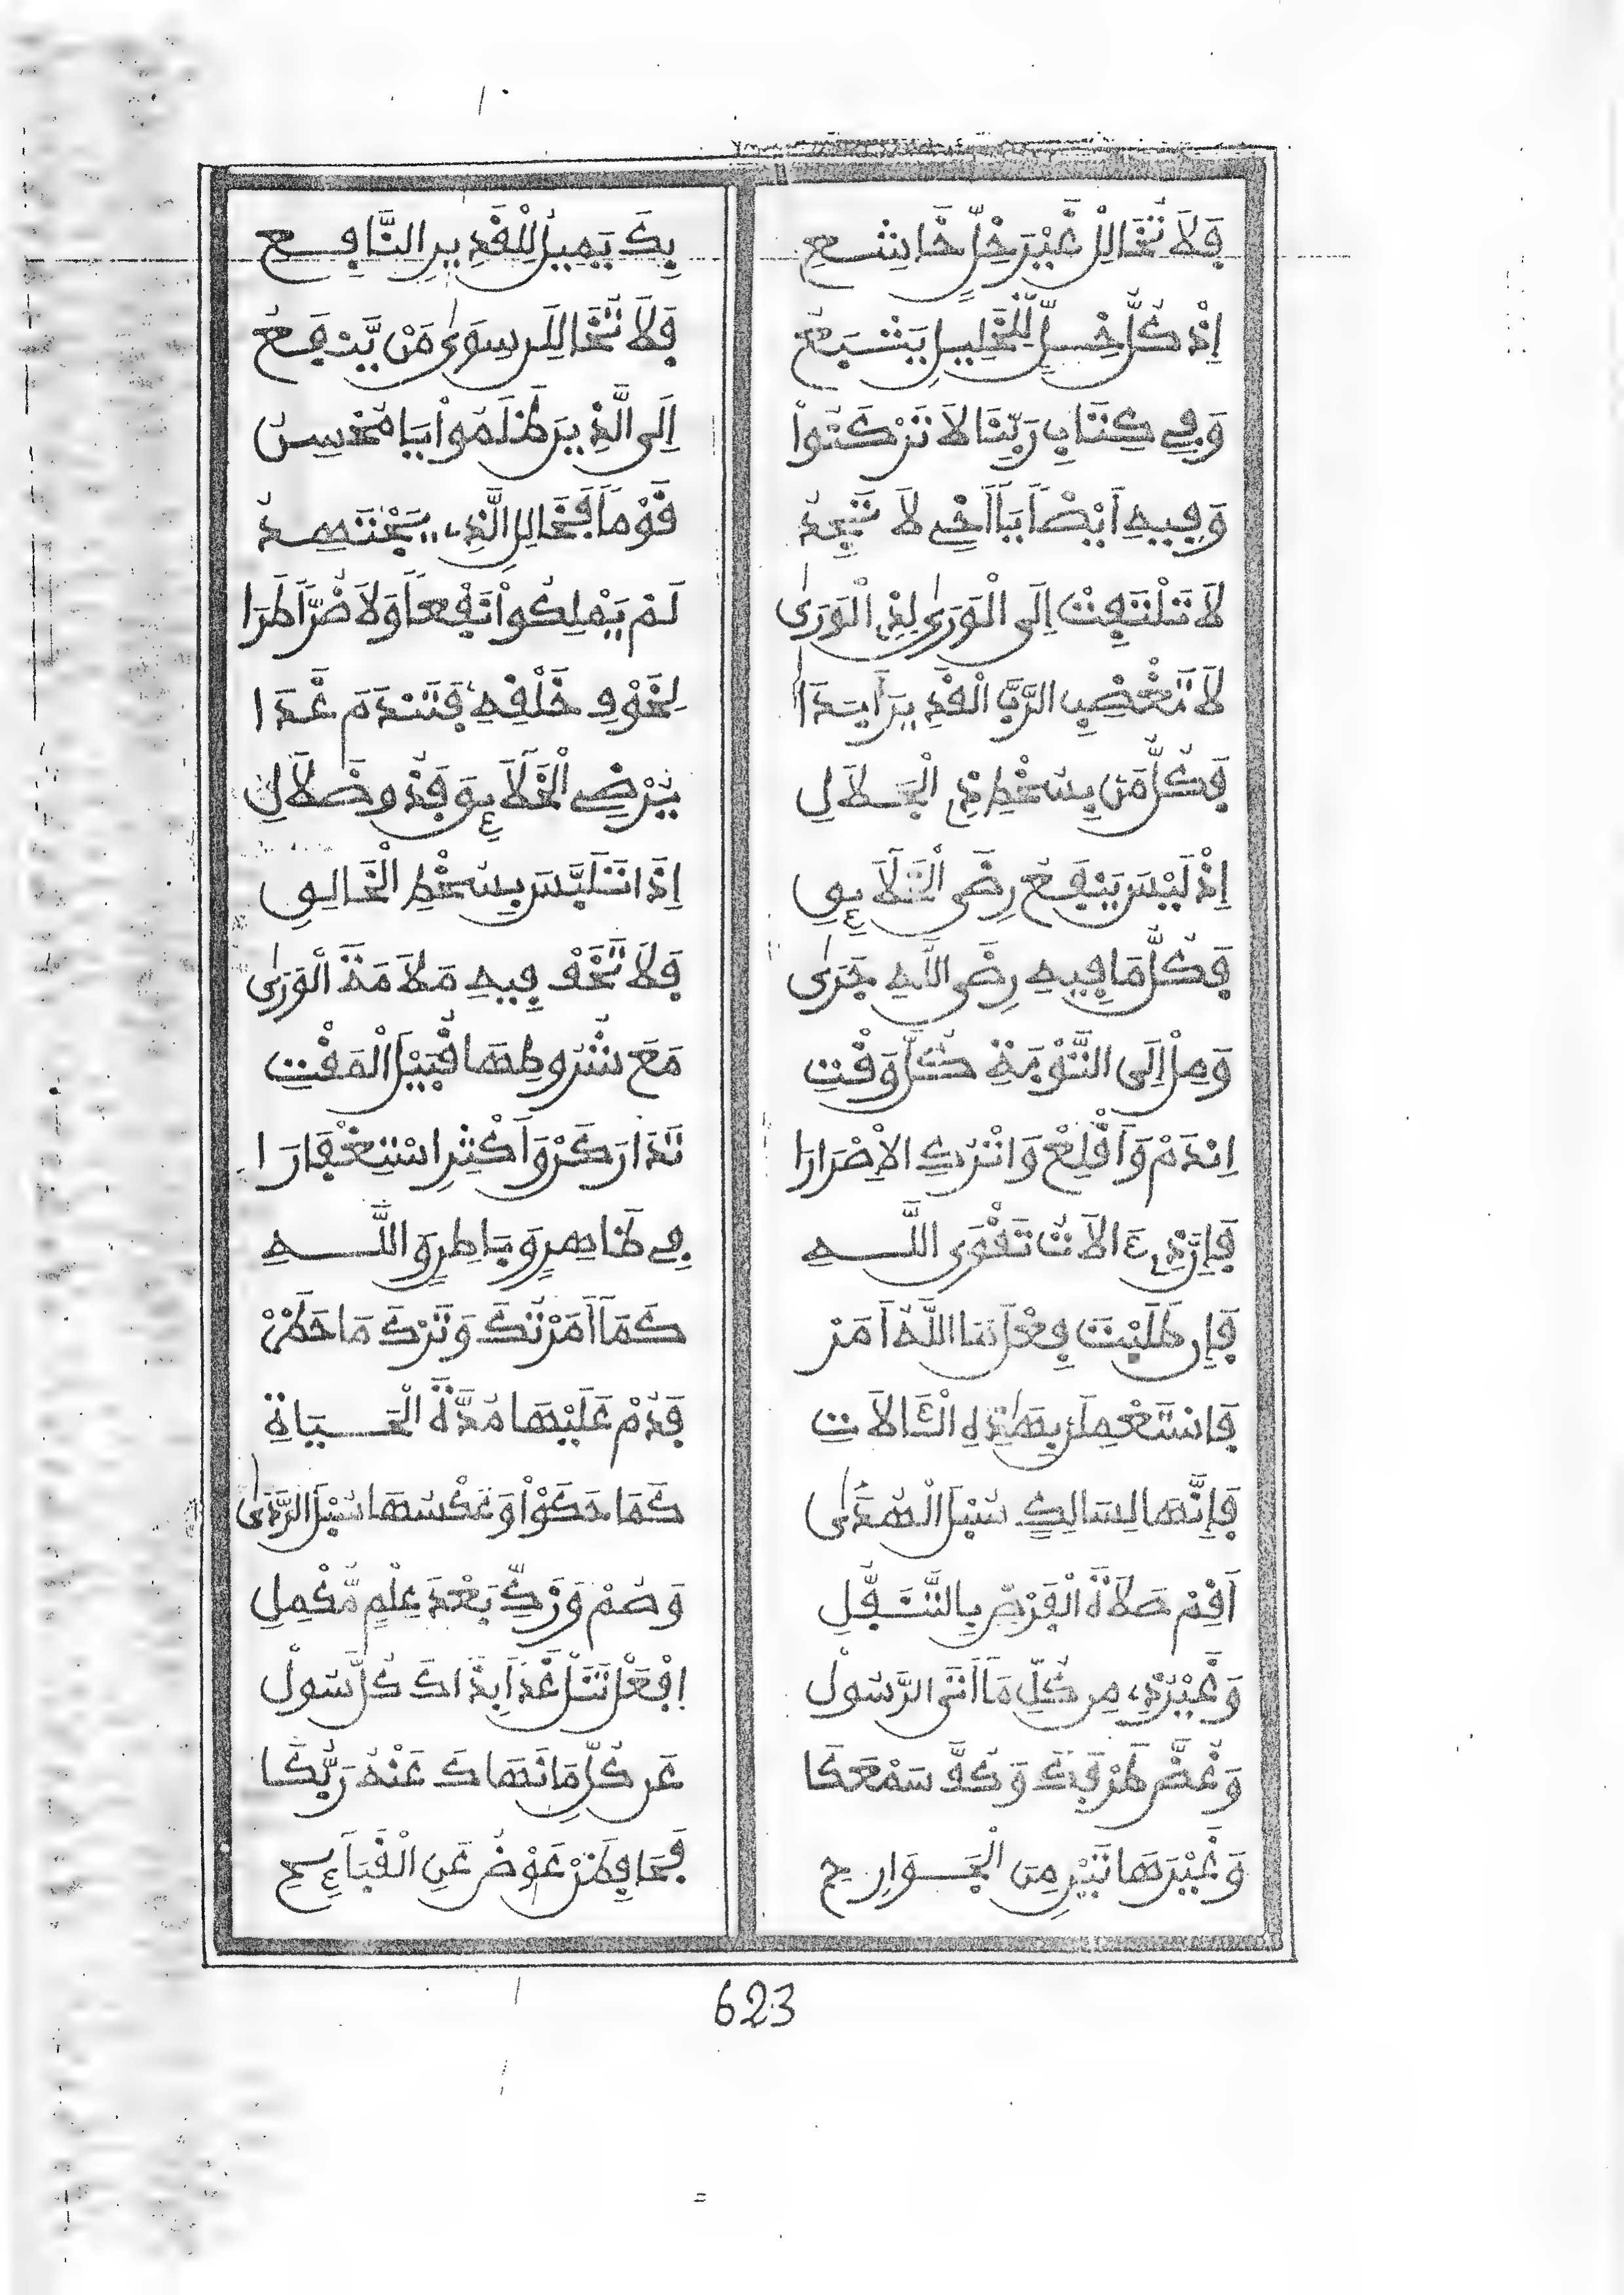 فَلَا تُخَالِلْ غَيْرَ خِلٍّ خَاشِعِ بِكَ يَمِيلُ لِلْقَدِيرِ النَّافِعِ
إِذْ كُلُّ خِلٍّ لِلْخَلِيلِ يَتْبَعُ فَلَا تُخَالِلَنْ سِوَىٰ مَنْ يَّنْفَعُ
وَفِي كِتَابِ رَبِّنَا لَا تَرْكَنُواْ إِلَى الَّذِينَ ظَلَمُواْ يَا مُحْسِنُ
وَفِيهِ أَيْضًا يَا أَخِي لَا تَجِدُ قَوْمًا فَخَالِلِ الَّذِي يَجْتَهِدُ
لَا تَلْتَفِتْ إِلَى الْوَرَىٰ لِذِي الْوَرَىٰ لَمْ يَمْلِكُواْ نَفْعًا وَلَا ضُرًّا طَرَا
لَا تُغْضِبِ الرَّبَّ الْقَدِيرَ أَبَدَا لِخَوْفِ خَلْقِهِ فَتَنْدَمَ غَدَا
فَكُلُّ مَنْ بِسُخْطِ ذِي الْجَلَالِ يُرْضِي الْخَلَائِقَ فَذُو ضَلَالِ
إِذْ لَيْسَ يَنْفَعُ رِضَى الْخَلَائِقِ إِذَا تَلَبَّسَ بِسُخْطِ الْخَالِقِ
فَكُلُّ مَا فِيهِ رِضَى اللَّهِ جَرَىٰ فَلَا تَخَفْ فِيهِ مَلَامَةَ الْوَرَىٰ
وَمِلْ إِلَى التَّوْبَةِ كُلَّ وَقْتِ مَعَ شُرُوطِهَا قُبَيْلَ الْمَقْتِ
اِنْدَمْ وَأَقْلِعْ وَاتْرُكِ الْإِصْرَارَا تَدَارَكَنْ وَأَكْثِرِ اسْتِغْفَارَا
فَإِنَّ ذِي ءَالَاتُ تَقْوَى اللَّهِ فِي ظَاهِرٍ وَبَاطِنٍ وَاللَّهِ
فَإِنْ طَلَبْتَ فِعْلَ مَا اللَّهُ أَمَرْ كَمَا أَمَرْتُكَ وَتَرْكَ مَا حَظَرْ
فَاسْتَعْمِلَنْ بِهَٰذِهِ الْآلَاتِ فَدُمْ عَلَيْهَا مُدَّةَ الْحَيَاةِ
فَإِنَّهَا لِسَالِكٍ سُبْلُ الْهُدَىٰ كَمَا حَكَوْاْ وَعَكْسُهَا سُبْلُ الرَّدَىٰ
أَقِمْ صَلَاةَ الْفَرْضِ بِالتَّنَفُّلِ وَصُمْ وَزَكِّ بَعْدَ عِلْمٍ مُّكْمِلِ
وَغَيْرَ ذِي مِنْ كُلِّ مَا أَتَى الرَّسُولْ اِفْعَلْ تَنَلْ غَدًا بِذَاكَ كُلَّ سُولْ
وَغُضَّ طَرْفَكَ وَكُفَّ سَمْعَكَا عَنْ كُلِّ مَا نَهَاكَ عَنْهُ رَبُّكَا
وَغَيْرَ هَاتَيْنِ مِنَ الْجَوَارِحِ فَحَافِظَنْ عَوْضُ عَنِ الْقَبَائِحِ
623